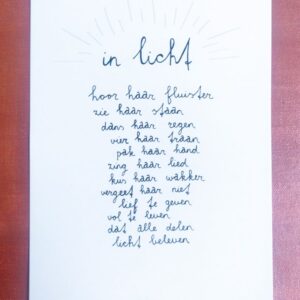 in licht
hoor haar fluister
zie haar staan
dans haar regen
vier haar traan
pak haar hand
zing haar lied
kus haar wakker
vergeet haar niet
lief te geven
vol te leven
dat alle delen
licht beleven